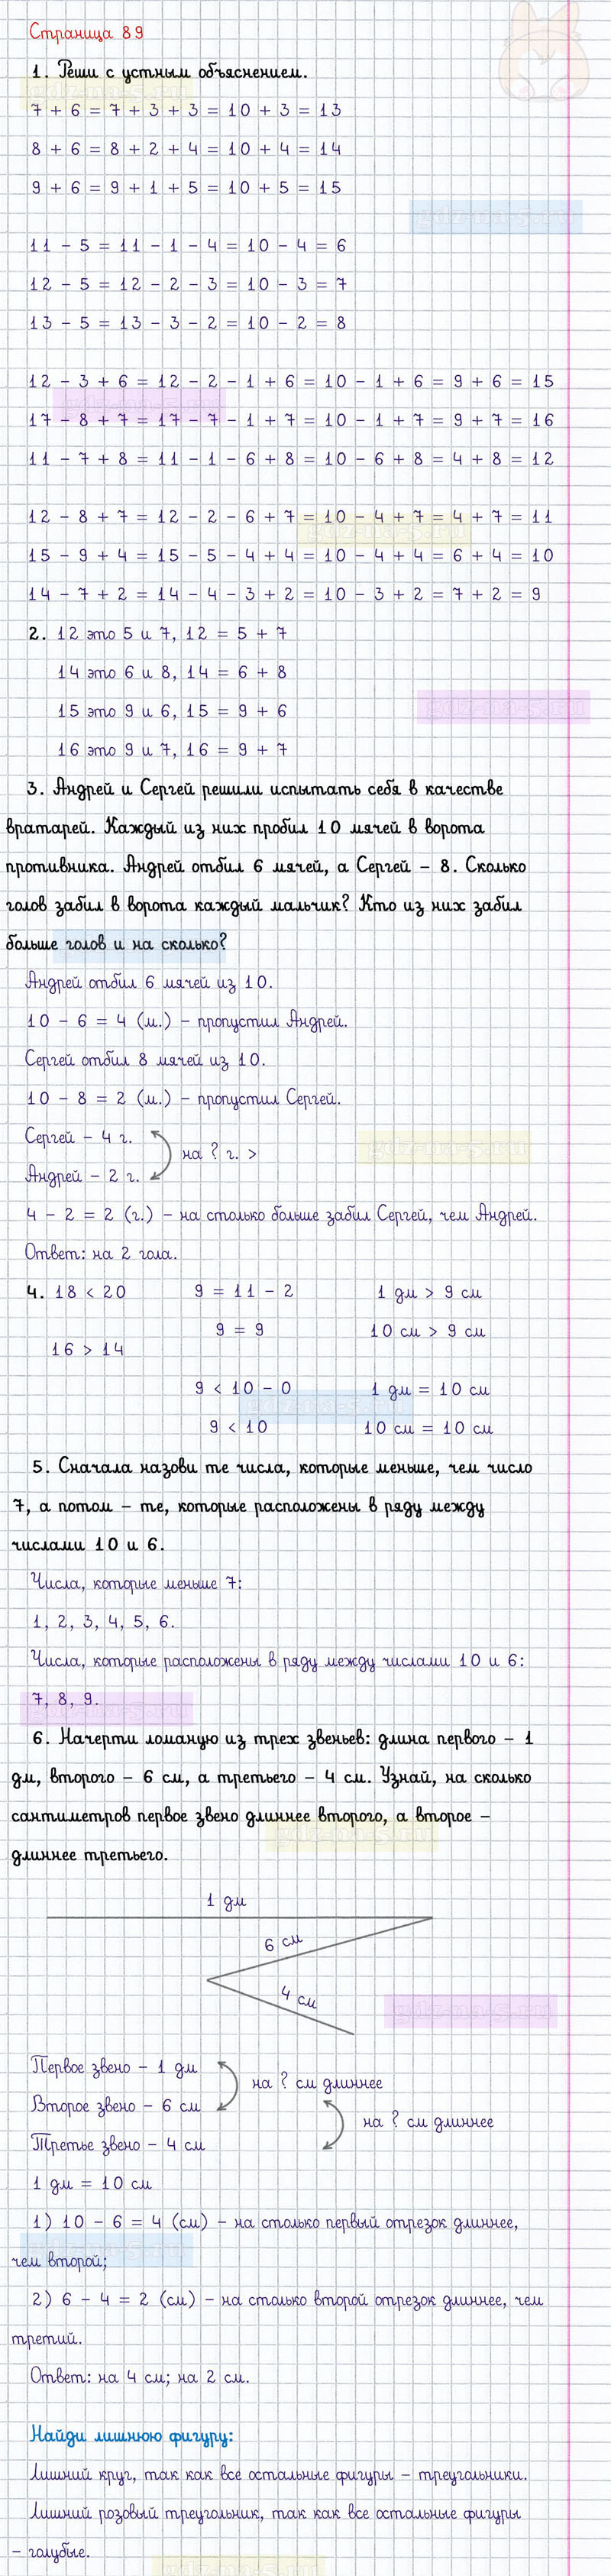 Страница 89
1. Реши с устным объяснением.
7 + 6 = 7 + 3 + 3 = 10 + 3 = 13
8 + 6 = 8 + 2 + 4 = 10 + 4 = 14
9 + 6 = 9 + 1 + 5 = 10 + 5 = 15
gdz-na-5.ru
11 - 5 = 11 - 1 - 4 = 10 - 4 = 6
12 - 5 = 12 - 2 - 3 = 10 - 3 = 7
13 - 5 = 13 - 3 - 2 = 10 - 2 = 8
12 - 3 + 6 = 12 - 2 - 1 + 6 = 10 - 1 + 6 = 9 + 6 = 15
17 - 8 + 7 = 17 - 7 - 1 + 7 = 10 - 1 + 7 = 9 + 7 = 16
11 - 7 + 8 = 11 - 1 - 6 + 8 = 10 - 6 + 8 = 4 + 8 = 12
12 - 8 + 7 = 12 - 2 - 6 + 7 = 10 - 4 + 7 = 4 + 7 = 11
15 - 9 + 4 = 15 - 5 - 4 + 4 = 10 - 4 + 4 = 6 + 4 = 10
14 - 7 + 2 = 14 - 4 - 3 + 2 = 10 - 3 + 2 = 7 + 2 = 9
2. 12 это 5 и 7, 12 = 5 + 7
14 это 6 и 8, 14 = 6 + 8
15 это 9 и 6, 15 = 9 + 6
gdz-na-5.ru
16 это 9 и 7, 16 = 9 + 7
3. Андрей и Сергей решили испытать себя в качестве
вратарей. Каждый из них пробил 10 мячей в ворота
противника. Андрей отбил 6 мячей, а Сергей - 8. Сколько
голов забил в ворота каждый мальчик? Кто из них забил
больше голов и на сколько?
Андрей отбил 6 мячей из 10.
10 - 6 = 4 (м.) - пропустил Андрей.
Сергей отбил 8 мячей из 10.
10 - 8 = 2 (м.) - пропустил Сергей.
Сергей - 4 г.
на ? г. >
gdz-na-5.ru
Андрей - 2 г.
4 - 2 = 2 (г.) - на столько больше забил Сергей, чем Андрей.
Ответ: на 2 гола.
4. 18 < 20 9 = 11 - 2 1 дм > 9 см
9 = 9 10 см > 9 см
16 > 14
9 < 10 - 0 1 дм = 10 см
9 < 10 10 см = 10 см
5. Сначала назови те числа, которые меньше, чем число
7, а потом - те, которые расположены в ряду между
числами 10 и 6.
Числа, которые меньше 7:
1, 2, 3, 4, 5, 6.
Числа, которые расположены в ряду между числами 10 и 6:
7, 8, 9.
6. Начерти ломаную из трех звеньев: длина первого - 1
дм, второго - 6 см, а третьего - 4 см. Узнай, на сколько
сантиметров первое звено длиннее второго, а второе -
gdz-na-5.ru
длиннее третьего.
1 дм
6 см
4 см
gdz-na-5.ru
Первое звено - 1 дм
на ? см длиннее
Второе звено - 6 см
на ? см длиннее
Третье звено - 4 см
1 дм = 10 см
1) 10 - 6 = 4 (см) - на столько первый отрезок длиннее,
чем второй;
2) 6 - 4 = 2 (см) - на столько второй отрезок длиннее, чем
третий.
Ответ: на 4 см; на 2 см.
Найди лишнюю фигуру:
Лишний круг, так как все остальные фигуры - треугольники.
Лишний розовый треугольник, так как все остальные фигуры
- голубые.